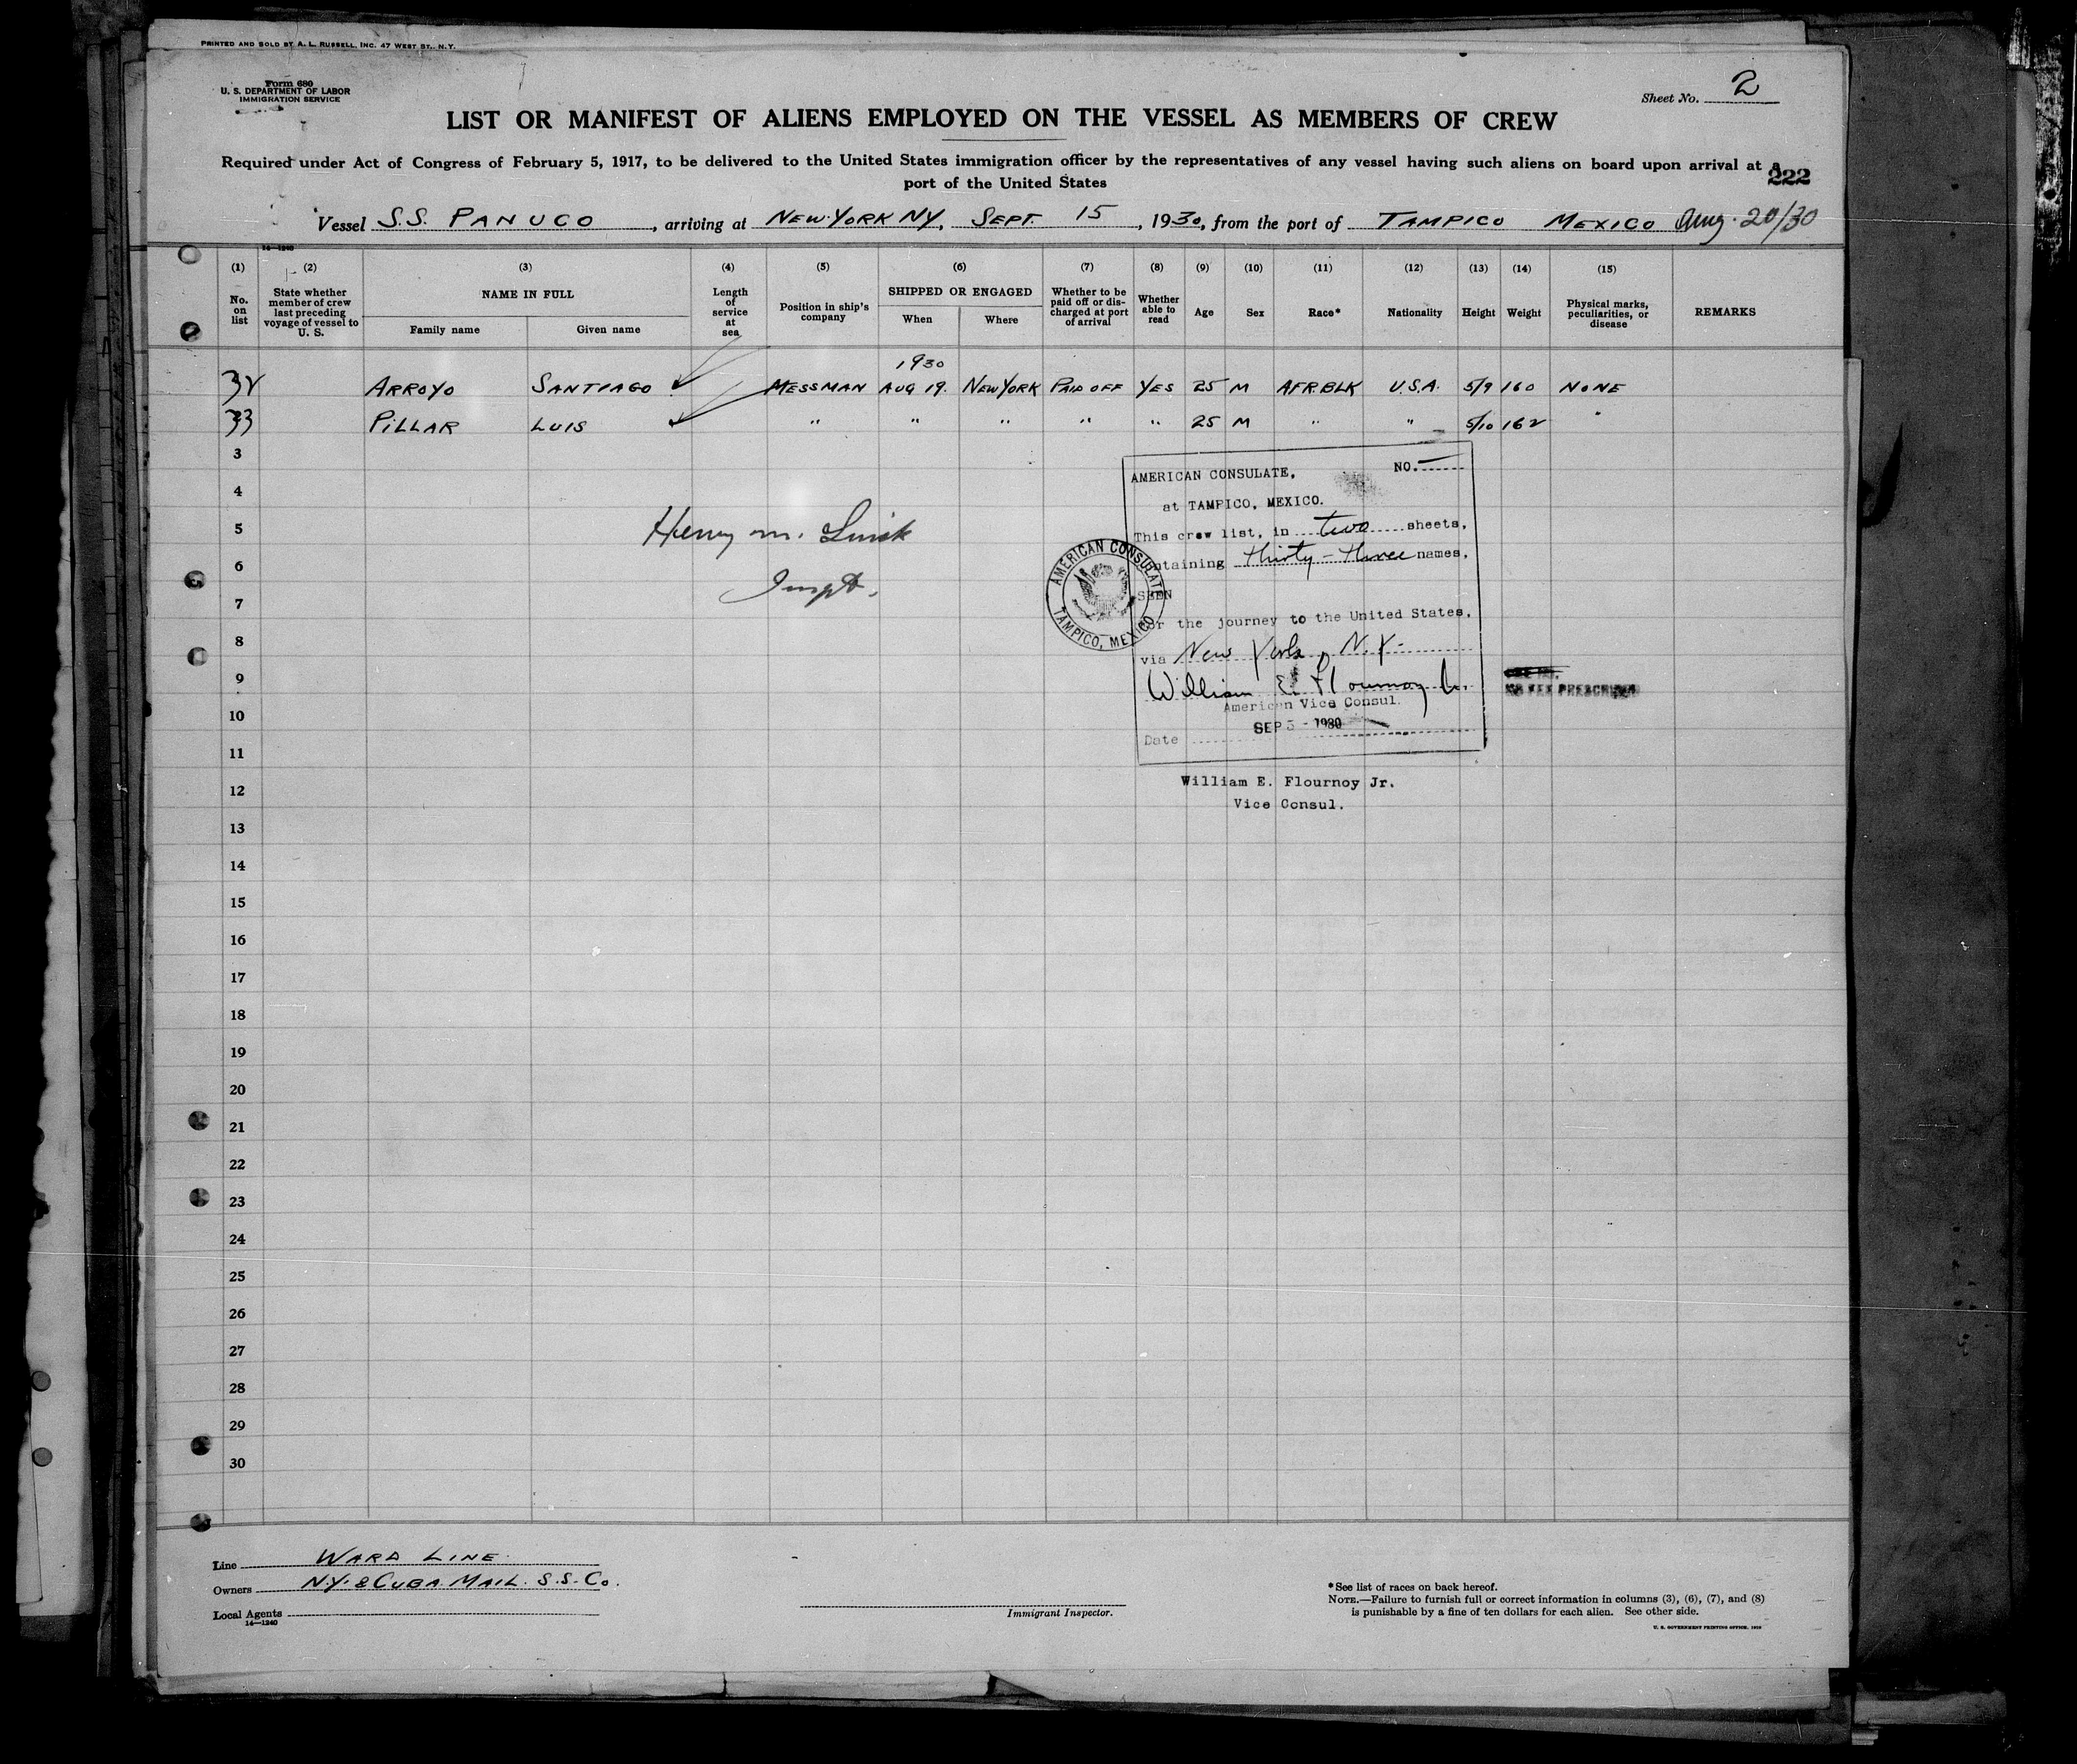 PRINTED AND SOLD BY A. L. RUSSELL, INC. 47 WEST ST., N.Y.
Form 680
U. S. DEPARTMENT OF LABOR
IMMIGRATION SERVICE
Sheet No. 2
LIST OR MANIFEST OF ALIENS EMPLOYED ON THE VESSEL AS MEMBERS OF CREW
Required under Act of Congress of February 5, 1917, to be delivered to the United States immigration officer by the representatives of any vessel having such aliens on board upon arrival at a
port of the United States
222
Vessel S.S. PANUCO, arriving at NEW YORK NY, SEPT. 15, 1930, from the port of TAMPICO MEXICO Aug. 20/30
14—1240
(1) (2) (3) (4) (5) (6) (7) (8) (9) (10) (11) (12) (13) (14) (15)
No. on list
State whether member of crew last preceding voyage of vessel to U. S.
NAME IN FULL
Family name
Given name
Length of service at sea
Position in ship's company
SHIPPED OR ENGAGED
When
Where
Whether to be paid off or discharged at port of arrival
Whether able to read
Age
Sex
Race*
Nationality
Height
Weight
Physical marks, peculiarities, or disease
REMARKS
1930
32 ARROYO SANTIAGO MESSMAN AUG 19. NEW YORK PAID OFF YES 25 M AFR.BLK U.S.A. 5/9 160 NONE
33 PILLAR LUIS " " " " " 25 M " " 5/10 162 "
3
4
5
6
7
8
9
10
11
12
13
14
15
16
17
18
19
20
21
22
23
24
25
26
27
28
29
30
Henry M.
Inspt.
AMERICAN CONSULATE, NO.
at TAMPICO, MEXICO.
This crew list, in two sheets,
containing thirty-three names,
SEEN
For the journey to the United States,
via New York, N.Y.
William E. Flournoy Jr.
American Vice Consul.
Date SEP 3 - 1930
AMERICAN CONSULATE
TAMPICO, MEXICO
NO FEE PRESCRIBED
William E. Flournoy Jr.
Vice Consul.
Line WARD LINE
Owners N.Y. & CUBA MAIL. S.S. Co.
Local Agents
14—1240
Immigrant Inspector.
*See list of races on back hereof.
NOTE.—Failure to furnish full or correct information in columns (3), (6), (7), and (8)
is punishable by a fine of ten dollars for each alien. See other side.
U. S. GOVERNMENT PRINTING OFFICE.